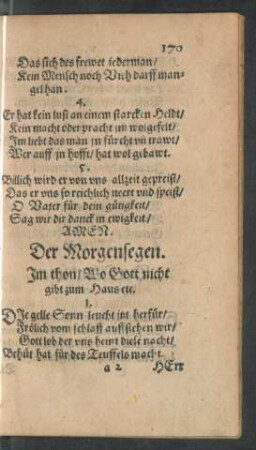 170
Das sich des frewet iederman/
Kein Mensch noch Vich darff man-
gel han.
4.
Er hat kein lust an einem starcken Heldt/
Kein macht oder pracht im wolgefelt/
Im liebt das man jn fürcht vñ trawt/
Wer auff jn hofft/ hat wol gebawt.
5.
Billich wird er von vns allzeit gepreist/
Das er vns so reichlich neert vnd speist/
O Vater für dein gütigkeit/
Sag wir dir danck in ewigkeit/
AMEN.
Der Morgensegen.
Im thon/ Wo Gott nicht
gibt zum Haus etc.
1.
DIe gelle Sonn leucht itzt herfür/
Frölich vom schlaff auffstehen wir/
Gott lob der vns heint diese nacht/
Behüt hat für des Teuffels macht.
a 2 HErr